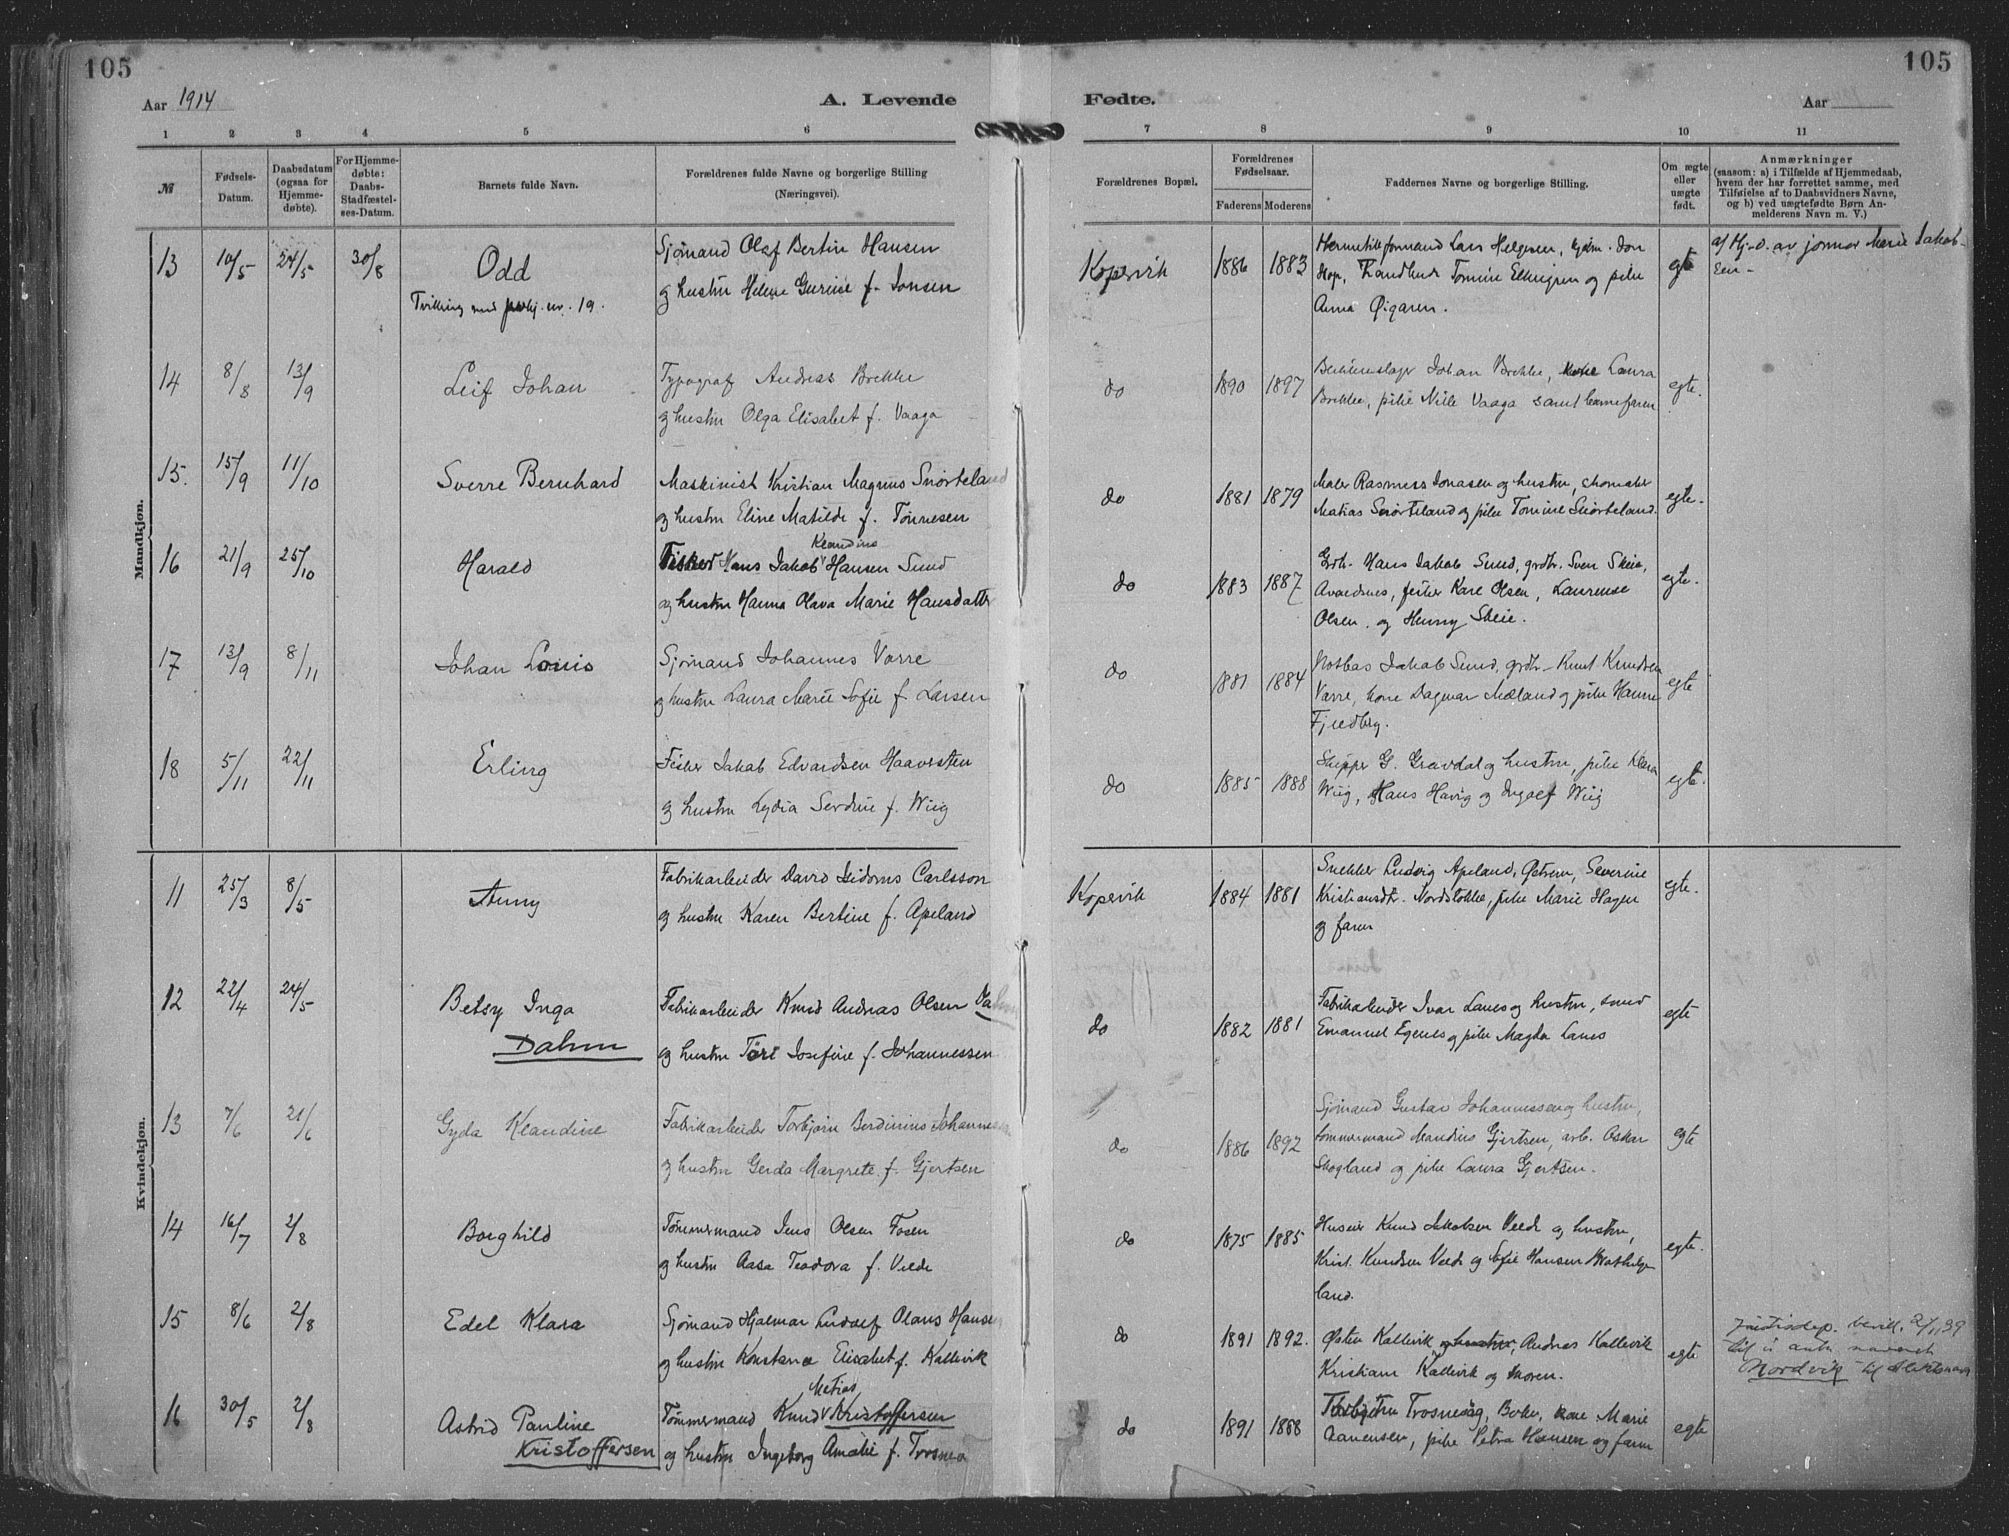 105
105
Aar 1914
A. Levende
Fødte.
Aar
1 2 3 4 5 6 7 8 9 10 11
№
Fødsels-
Datum.
Daabsdatum
(ogsaa for
Hjemme-
døbte).
For Hjemme-
døbte:
Daabs-
Stadfæstel-
ses-Datum.
Barnets fulde Navn.
Forældrenes fulde Navne og borgerlige Stilling
(Næringsvei).
Forældrenes Bopæl.
Forældrenes
Fødselsaar.
Faderens Moderens
Faddernes Navne og borgerlige Stilling.
Om ægte
eller
uægte
født.
Anmærkninger
(saasom: a) i Tilfælde af Hjemmedaab,
hvem der har forrettet samme, med
Tilføielse af to Daabsvidners Navne,
og b) ved uægtefødte Børn An-
melderens Navn m. V.)
Mandkjøn.
13 10/5 24/5 30/8 Odd
Tvilling med nr. 19.
Sjømand Olaf Bertin Hansen
og hustru Helene Gurine f. Jonsen
Kopervik 1886 1883
Hermetikformand Lars Helgesen,
Hop, Tomine Ellingsen og pike
Anna
egte
af Hj-d. av jormor Marie Jakob-
sen-
14 8/8 13/9 Leif Johan
Typograf Andreas Brekke
og hustru Olga Elisabet f. Vaaga
do 1890 1897
Blikkenslager Johan Brekke, kone Laura
Brekke, pike Nille Vaaga samt barnefaren
egte.
15. 15/9 11/10 Sverre Bernhard
Maskinist Kristian Magnus Snørteland
og hustru Eline Matilde f. Tønnesen
do 1881 1879
Maler Rasmus Jonasen og hustru, skomaker
Matias Snørteland og pike Tomine Snørteland.
egte.
16 21/9 25/10 Harald
Klaudius
Fisker Hans Jakob Hansen Sund
og hustru Hanna Olava Marie Hansdatter
do 1883 1887
Grdr. Hans Jakob Sund, grdbr. Sven Skeie,
Avaldsnes, fisker Kare Olsen, Laurense
Olsen. og Henny Skeie.
egte.
17 13/9 8/11 Johan Louis
Sjømand Johannes Varre
og hustru Laura Marie Sofie f. Larsen
do 1881 1884
Notbas Jakob Sund, grdbr. Knut Knudsen
Varre, kone Dagmar Mæland og pike Hanna
Fjedberg.
egte
18 5/11 22/11 Erling
Fisker Jakob Edvardsen Haavesten
og hustru Lydia Serdine f. Wiig
do 1885 1888
Skipper G. Gravdal og hustru, pike Klara
Wiig, Hans Havig og Ingolf Wiig
egte.
Kvindekjøn.
11 25/3 8/5 Anny
Fabrikarbeider David Carlsson
og hustru Karen Bertine f. Apeland
Kopervik 1884 1881
Snekker Ludvig Apeland, Severine
Kristiansdtr. Nordstokke, pike Marie Hagen
og faren
egte.
12 22/4 24/5 Betsy Inga
Dahm
Fabrikarbeider Knud Andreas Olsen Dahm
og hustru Tøri Josefine f. Johannessen
do 1882 1881
Fabrikarbeider Ivar Lanes og hustru, smed
Emanuel Egenes og pike Magda Lanes
egte
13 7/6 21/6 Gyda Klaudine
Fabrikarbeider Torbjørn Berdinius Johannessen
og hustru Gerda Margrete f. Gjertsen
do 1886 1892
Sjømand Gustav Johannessen og hustru,
tømmermand Mandius Gjertsen, arb. Oskar
Skogland og pike Laura Gjertsen.
egte
14 16/7 2/8 Borghild
Tømmermand Jens Olsen Fosen
og hustru Aasa Teodora f. Velde
do 1875 1885
Huseier Knud Jakobsen Velde og hustru,
Krist. Knudsen Velde og Sofie Hansen
land.
egte.
15 8/6 2/8 Edel Klara
Sjømand Hjalmar Ludolf Olaus Hansen
og hustru Konstanse Elisabet f. Kallevik
do 1891 1892.
Østen Kallevik og hustru, Andreas Kallevik
Kristian Kallevik og moren.
egte
Justisdep. bevill. 2/1 39
til å anta navnet
Nordvik til slektsnavn
16 30/5 2/8 Astrid Pauline
Kristoffersen
Matias
Tømmermand Knud Kristoffersen
og hustru Ingeborg Amalie f. Trosnea
do 1891 1888
Torbjørn Trosnevåg, Bokn, kone Marie
Aanensen, pike Petra Hansen og faren
egte